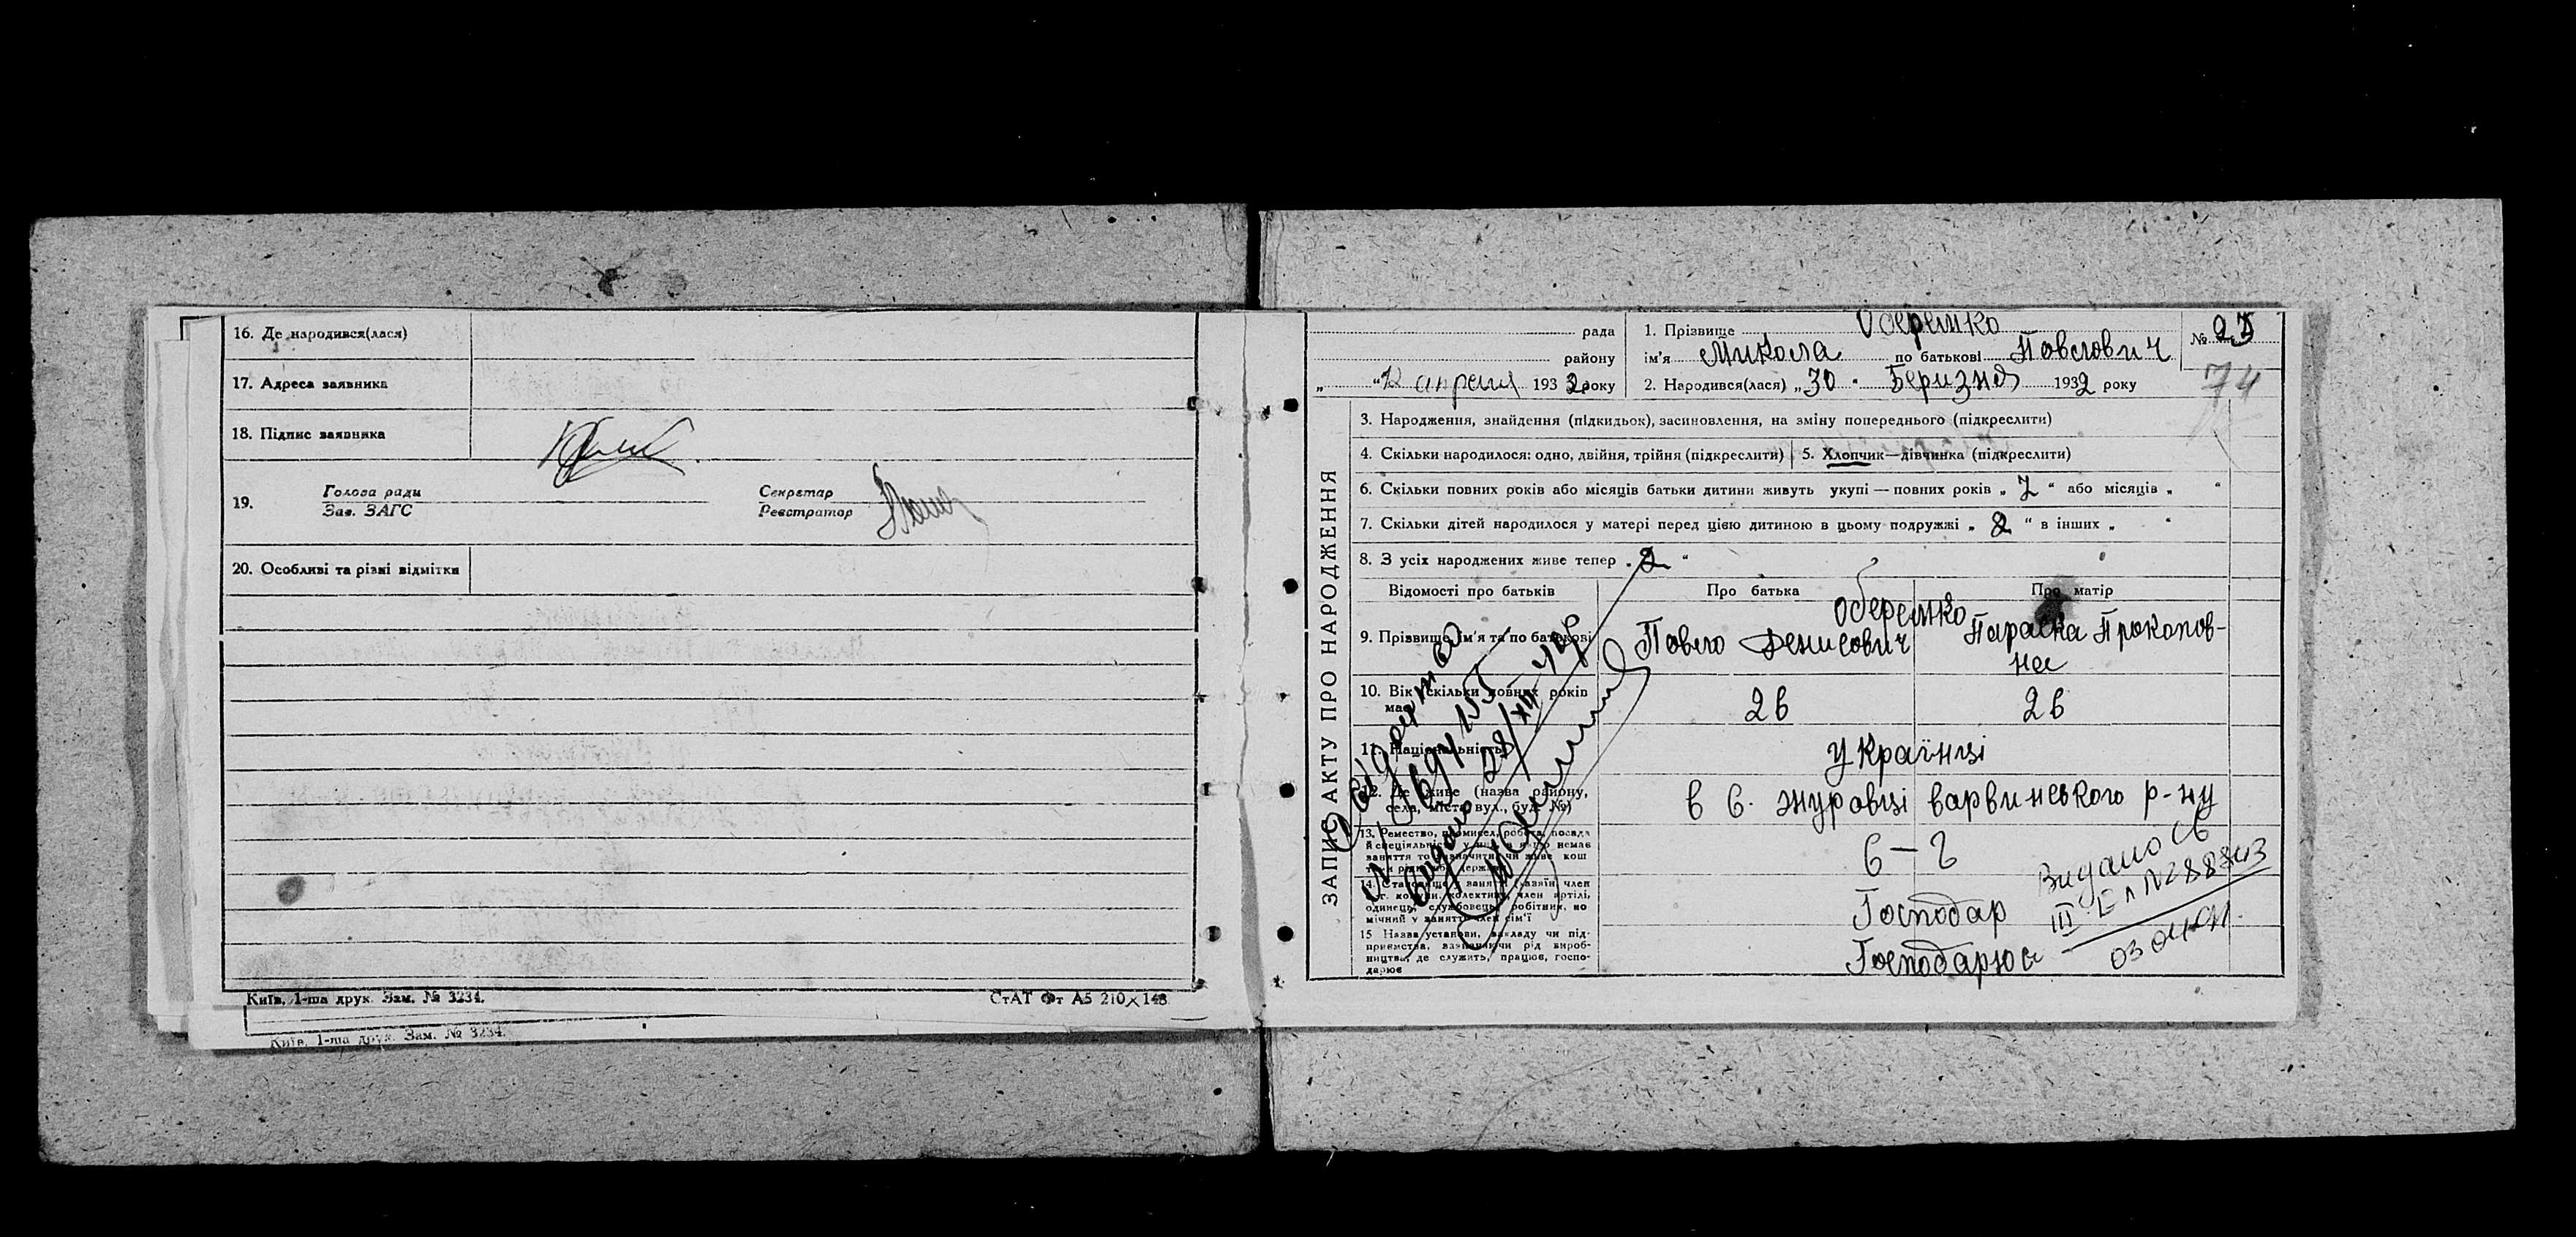 16. Де народився(лася)
17. Адреса заявника
18. Підпис заявника
19. Голова ради
Зав. ЗАГС
Секретар
Реєстратор
20. Особливі та різні відмітки
Київ, 1-ша друк. Зам. № 3234.
СтАТ Фт А5 210×148
Київ, 1-ша друк. Зам. № 3234.
ЗАПИС АКТУ ПРО НАРОДЖЕННЯ
рада
району
„ “ 12 апреля 1932 року
1. Прізвище Оберемко
ім'я Микола по батькові Павлович
2. Народився(лася) „30" Березня 1932 року
№ 25
74
3. Народження, знайдення (підкидьок), засиновлення, на зміну попереднього (підкреслити)
4. Скільки народилося: одно, двійня, трійня (підкреслити) 5. Хлопчик—дівчинка (підкреслити)
6. Скільки повних років або місяців батьки дитини живуть укупі — повних років „ 7 “ або місяців „ “
7. Скільки дітей народилося у матері перед цією дитиною в цьому подружжі „ 2 “ в інших „ “
8. З усіх народжених живе тепер „ 2 “
Відомості про батьків Про батька Про матір
9. Прізвище, ім'я та по батькові
Оберемко
Павло Денисович
Параска Прокопов-
на
10. Вік (скільки повних років
має)
26 26
11. Національність
Українці
12. Де живе (назва району,
села, міста, вул., буд. №)
в с. Журавці Варвинського р-ну
13. Ремество, промисел, робота, посада
й спеціяльність, у кого немає
заняття то зазначити чи живе кош
с – г
14. Становище у занятті (хазяїн, член
с.г. комуни, колективу, член артілі,
одинець, службовець, робітник, по
мічний у занятті член сім'ї
Господар
15 Назва установи, закладу чи під-
приємства, зазначаючи рід вироб-
ництва, де служить, працює, госпо-
дарює
Господарює
Видано св
III ЕЛ № 288843
03 04 91.
Выдано 28/XII-48